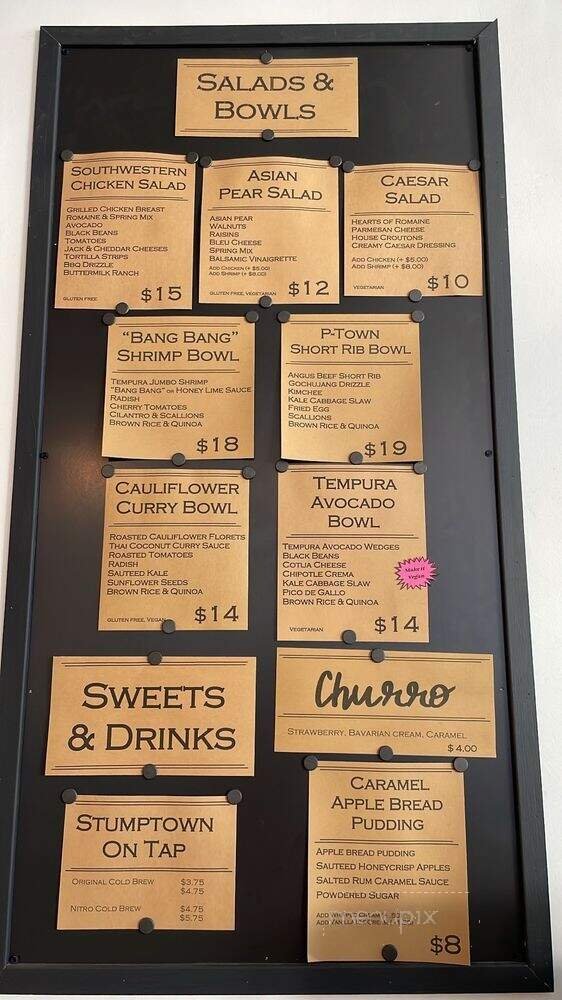 SALADS &
BOWLS
SOUTHWESTERN
CHICKEN SALAD
GRILLED CHICKEN BREAST
ROMAINE & SPRING MIX
AVOCADO
BLACK BEANS
TOMATOES
JACK & CHEDDAR CHEESES
TORTILLA STRIPS
BBQ DRIZZLE
BUTTERMILK RANCH
GLUTEN FREE
$15
ASIAN
PEAR SALAD
ASIAN PEAR
WALNUTS
RAISINS
BLEU CHEESE
SPRING MIX
BALSAMIC VINAIGRETTE
ADD CHICKEN (+ $5.00)
ADD SHRIMP (+ $8.00)
GLUTEN FREE, VEGETARIAN
$12
CAESAR
SALAD
HEARTS OF ROMAINE
PARMESAN CHEESE
HOUSE CROUTONS
CREAMY CAESAR DRESSING
ADD CHICKEN (+ $5.00)
ADD SHRIMP (+ $8.00)
VEGETARIAN
$10
"BANG BANG"
SHRIMP BOWL
TEMPURA JUMBO SHRIMP
"BANG BANG" OR HONEY LIME SAUCE
RADISH
CHERRY TOMATOES
CILANTRO & SCALLIONS
BROWN RICE & QUINOA
$18
P-TOWN
SHORT RIB BOWL
ANGUS BEEF SHORT RIB
GOCHUJANG DRIZZLE
KIMCHEE
KALE CABBAGE SLAW
FRIED EGG
SCALLIONS
BROWN RICE & QUINOA
$19
CAULIFLOWER
CURRY BOWL
ROASTED CAULIFLOWER FLORETS
THAI COCONUT CURRY SAUCE
ROASTED TOMATOES
RADISH
SAUTEED KALE
SUNFLOWER SEEDS
BROWN RICE & QUINOA
GLUTEN FREE, VEGAN
$14
TEMPURA
AVOCADO
BOWL
TEMPURA AVOCADO WEDGES
BLACK BEANS
COTIJA CHEESE
CHIPOTLE CREMA
KALE CABBAGE SLAW
PICO DE GALLO
BROWN RICE & QUINOA
Make it
Vegan
VEGETARIAN
$14
SWEETS
& DRINKS
Churro
STRAWBERRY, BAVARIAN CREAM, CARAMEL
$4.00
STUMPTOWN
ON TAP
ORIGINAL COLD BREW $3.75
$4.75
NITRO COLD BREW $4.75
$5.75
CARAMEL
APPLE BREAD
PUDDING
APPLE BREAD PUDDING
SAUTEED HONEYCRISP APPLES
SALTED RUM CARAMEL SAUCE
POWDERED SUGAR
ADD
ADD
$8